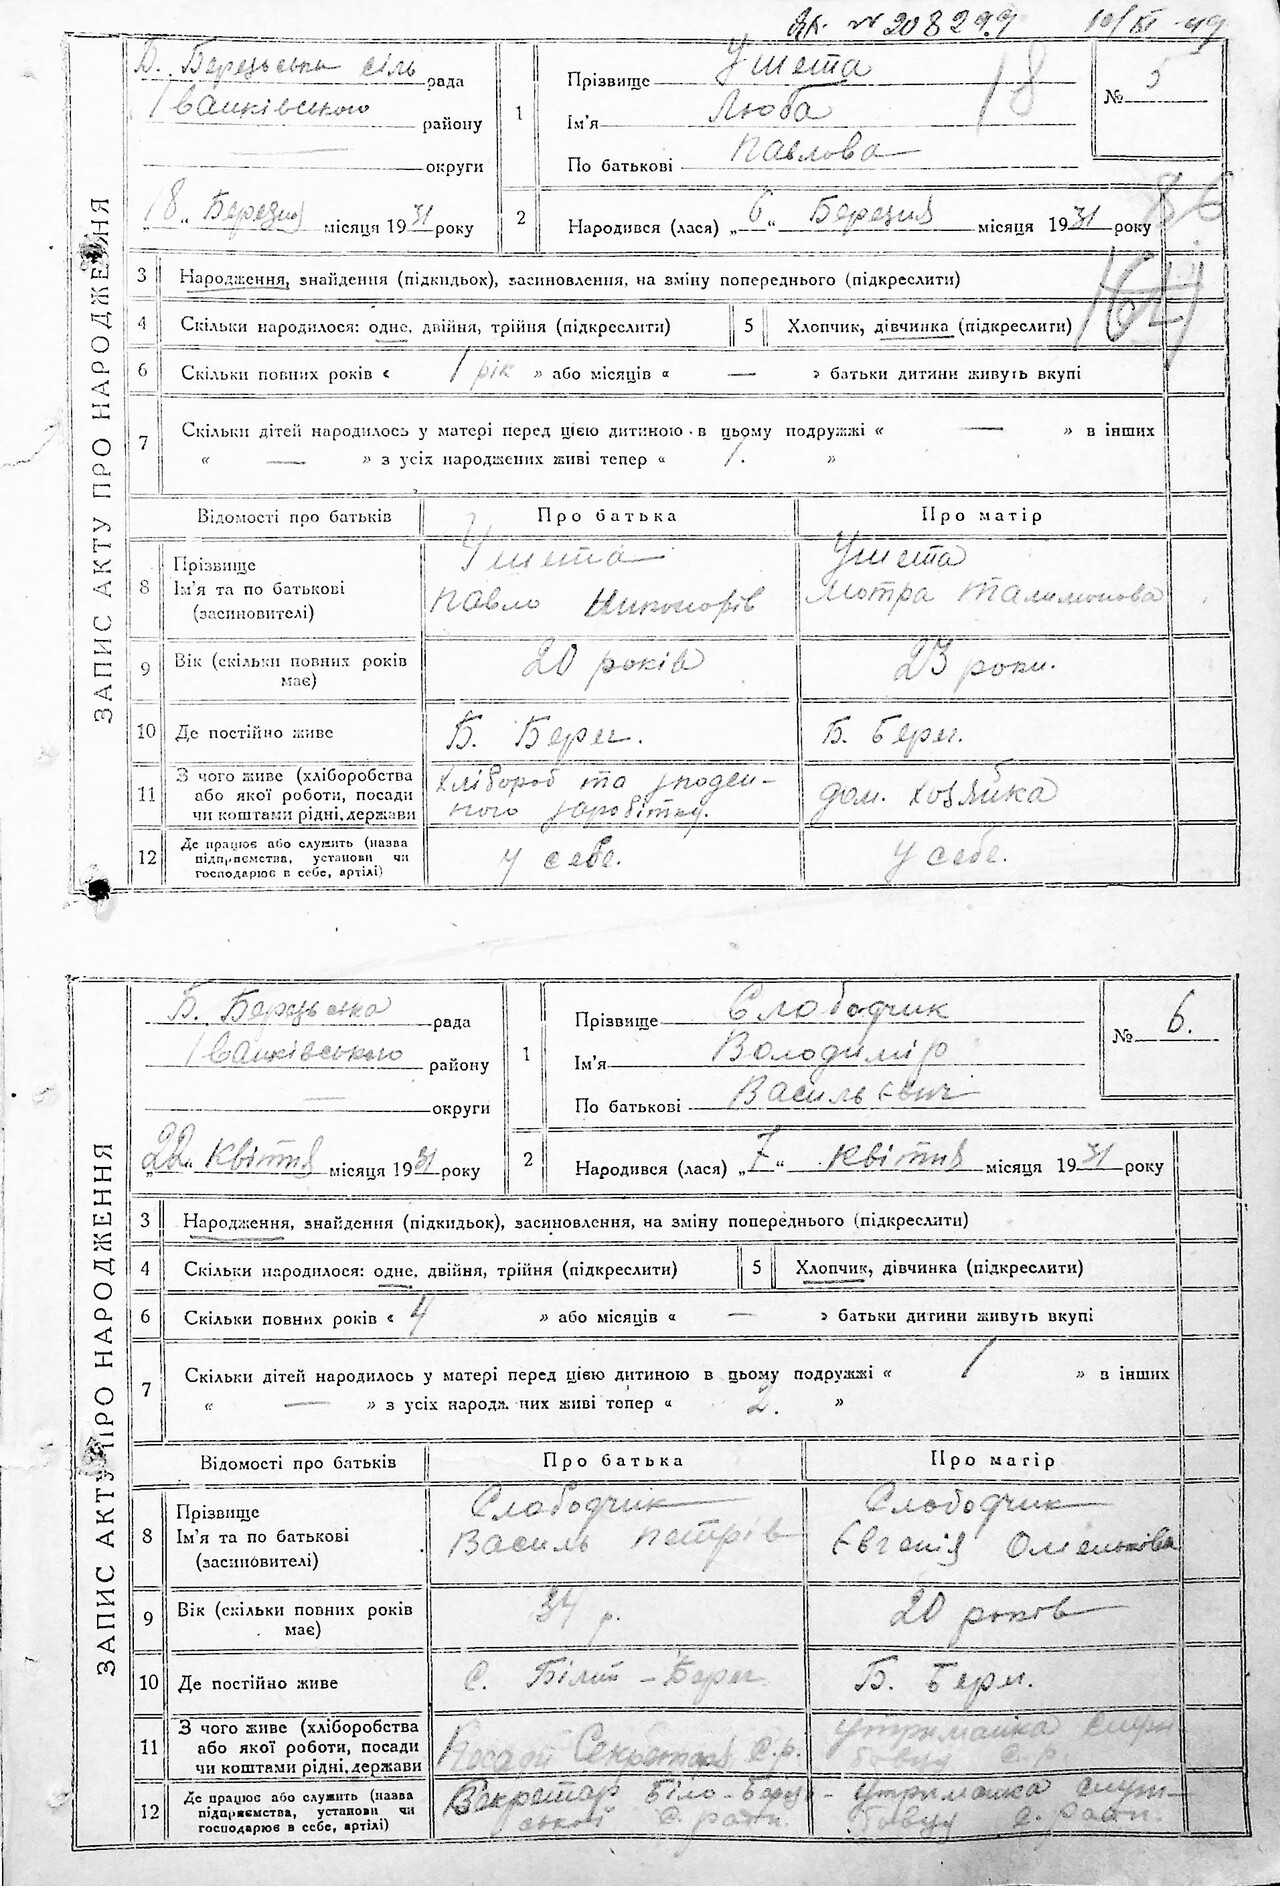 № 208299 10/XI-49
ЗАПИС АКТУ ПРО НАРОДЖЕННЯ
Б. Берецьська сіль рада
Іванківського району
— округи
"18" Березня місяця 1931 року
1
Прізвище Ушета
Ім'я Люба
По батькові Павлова
18
№ 5
2
Народився (лася) „6“ Березня місяця 1931 року
86
3 Народження, знайдення (підкидьок), засиновлення, на зміну попереднього (підкреслити)
4 Скільки народилося: одне, двійня, трійня (підкреслити)
5 Хлопчик, дівчинка (підкреслити)
6 Скільки повних років « 1 рік » або місяців « — » батьки дитини живуть вкупі
7 Скільки дітей народилось у матері перед цією дитиною в цьому подружжі « — » в інших
« — » з усіх народжених живі тепер « 1. »
Відомості про батьків Про батька Про матір
8 Прізвище Ім'я та по батькові (засиновителі)
Ушета Павло Никонорів
Ушета Мотра Талимонова
9 Вік (скільки повних років має) 20 років 23 роки.
10 Де постійно живе Б. Берег. Б. Берег.
11 З чого живе (хліборобства або якої роботи, посади чи коштами рідні, держави
Хлібороб та поденного заробітку.
дом. хозяйка
12 Де працює або служить (назва підприємства, установи чи господарює в себе, артілі) у себе. у себе.
ЗАПИС АКТУ ПРО НАРОДЖЕННЯ
Б. Берецьська рада
Іванківського району
— округи
„22“ Квітня місяця 1931 року
1
Прізвище Слободчик
Ім'я Володимір
По батькові Васильєвич
№ 6.
2
Народився (лася) „7“ Квітня місяця 1931 року
3 Народження, знайдення (підкидьок), засиновлення, на зміну попереднього (підкреслити)
4 Скільки народилося: одне, двійня, трійня (підкреслити)
5 Хлопчик, дівчинка (підкреслити)
6 Скільки повних років « 4 » або місяців « — » батьки дитини живуть вкупі
7 Скільки дітей народилось у матері перед цією дитиною в цьому подружжі « 1 » в інших
« — » з усіх народж них живі тепер « 2. »
Відомості про батьків Про батька Про матір
8 Прізвище Ім'я та по батькові (засиновителі)
Слободчик Василь Петрів
Слободчик Євгенія Омелькова
9 Вік (скільки повних років має) 34 р. 20 років
10 Де постійно живе с. Білий-Берег Б. Берег.
11 З чого живе (хліборобства або якої роботи, посади чи коштами рідні, держави
Посади Секретаря с.р.
утриманка службовця с.р.
12 Де працює або служить (назва підприємства, установи чи господарює в себе, артілі)
Секретар Біло-Берецьської с. ради.
утриманка службовця с. ради.